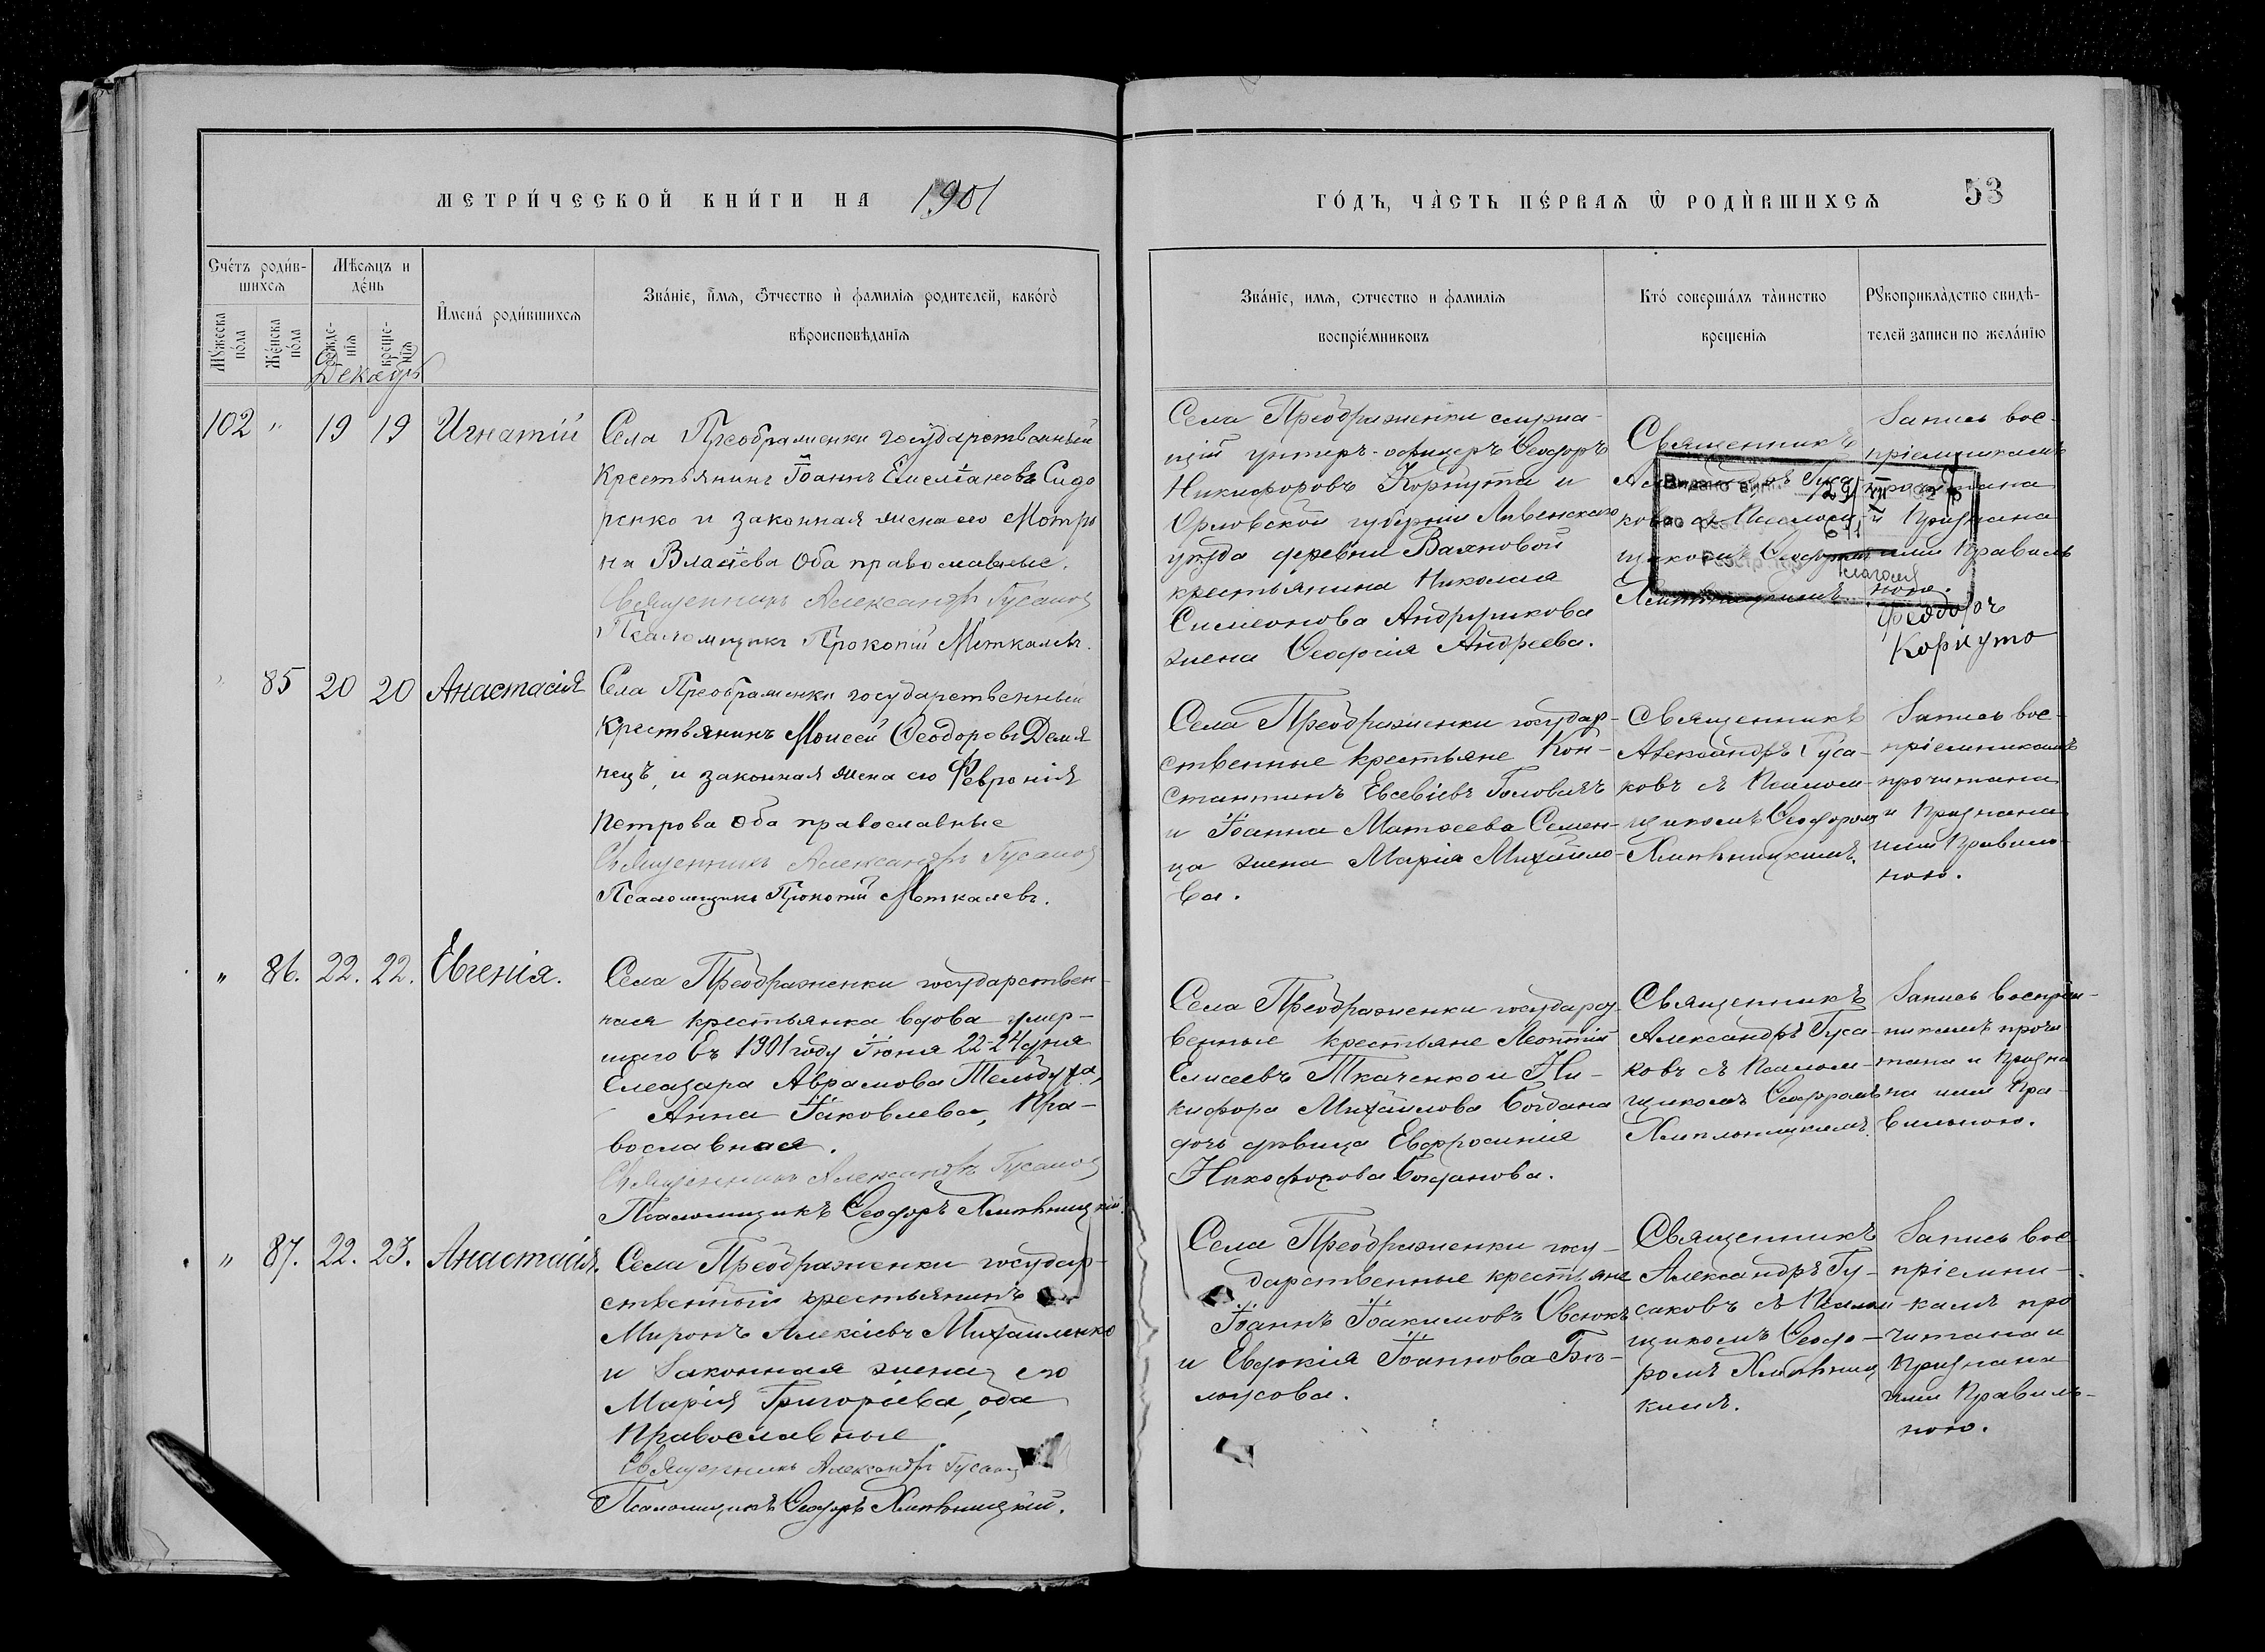 МЕТРИ́ЧЕСКОЙ КНИ́ГИ НА 1901
ГО́ДЪ, ЧА́СТЬ ПЕ́РВАЯ Ѿ РОДИ́ВШИХСЯ 53
Сче́тъ роди́в-
шихся
Мѣсяцъ и
де́нь
Имена́ роди́вшихся
Зва́нїе, и́мя, о́тчество и фамилїя родителей, како́го
вѣроисповѣ́данїя
Му́жеска по́ла
Же́нска по́ла
рожде-нїя
креще-нїя
Декабрь
Зва́нїе, имя, отчество и фамилїя
воспрїе́мниковъ
Кто́ соверша́лъ та́инство
крещенїя
Рукоприкла́дство свидѣ-
телей записи по жела́нїю
102 " 19 19 Игнатій
Села Преображенки государственный
крестьянинъ Іоаннъ Емеліановъ Сидо
ренко и законная жена его Матро
на Власіева оба православные.
Священникъ Александръ Гусаков
Псаломщикъ Прокопій Меткалевъ.
Села Преображенки служа-
щій унтеръ-офицеръ Ѳеодоръ
Никифоровъ Коркута и
Орловской губерніи Ливенскаго
уѣзда деревни Ваяновой
крестьянина Николая
Симеонова Андрушкова
жена Ѳеофсія Андреева.
Священникъ
ковъ съ Псалом
щикомъ Ѳеодоромъ
Запись вос-
пріемникамъ
прочитана
и признана
ими правиль
ною.
Ѳеодоръ
Коркуто
Видано
29 VII
85 20 20 Анастасія
Села Преображенки государственный
крестьянинъ Моисей Ѳеодоровъ Демя
нецъ, и законная жена его Февронія
Петрова оба православные
Священникъ Александръ Гусаков
Псаломщикъ Прокопій Меткалевъ.
Села Преображенки государ-
ственные крестьяне Кон-
стантинъ Евсевіевъ Головачъ
и Іоанна Матѳеева Семен-
ца жена Марія Михайло-
ва.
Священникъ
Александръ Гуса-
ковъ съ Псалом-
щикомъ Ѳеодоромъ
Хмѣльницкимъ.
Запись вос-
пріемникамъ
прочитана
и признана
ими правиль-
ною.
" 86. 22. 22. Евгенія.
Села Преображенки государствен-
ная крестьянка вдова умер-
шаго въ 1901 году Іюня 22-24 дня
Елеазара Аврамова Тельбуха,
Анна Іаковлева, Пра-
вославная.
Священникъ Александръ Гусаков
Псаломщикъ Ѳеодоръ Хмѣльницкій.
Села Преображенки государст
венные крестьяне Леонтій
Елисеевъ Ткаченко и Ни-
кифора Михаилова Богдана
дочь дѣвица Евфросинія
Никифорова Богданова.
Священникъ
Александръ Гуса-
ковъ съ Псалом-
щикомъ Ѳеодоромъ
Хмѣльницкимъ.
Запись воспріем-
никамъ прочи
тана и призна
на ими пра-
вильною.
" 87. 22. 23. Анастасія.
Села Преображенки государ-
ственный крестьянинъ
Миронъ Алексіевъ Михайленко
и законная жена его
Марія Григоріева, оба
Православные
Священникъ Александръ Гусаков
Псаломщикъ Ѳеодоръ Хмѣльницкій.
Села Преображенки госу-
дарственные крестьяне
Іоаннъ Іоакимовъ Овсюкъ
и Евдокія Іоаннова Бѣ-
лоусова.
Священникъ
Александръ Гу-
саковъ съ Псалом
щикомъ Ѳеодо-
ромъ Хмѣльниц
кимъ.
Запись вос
пріемни-
камъ про
читана и
признана
ими правиль-
ною.